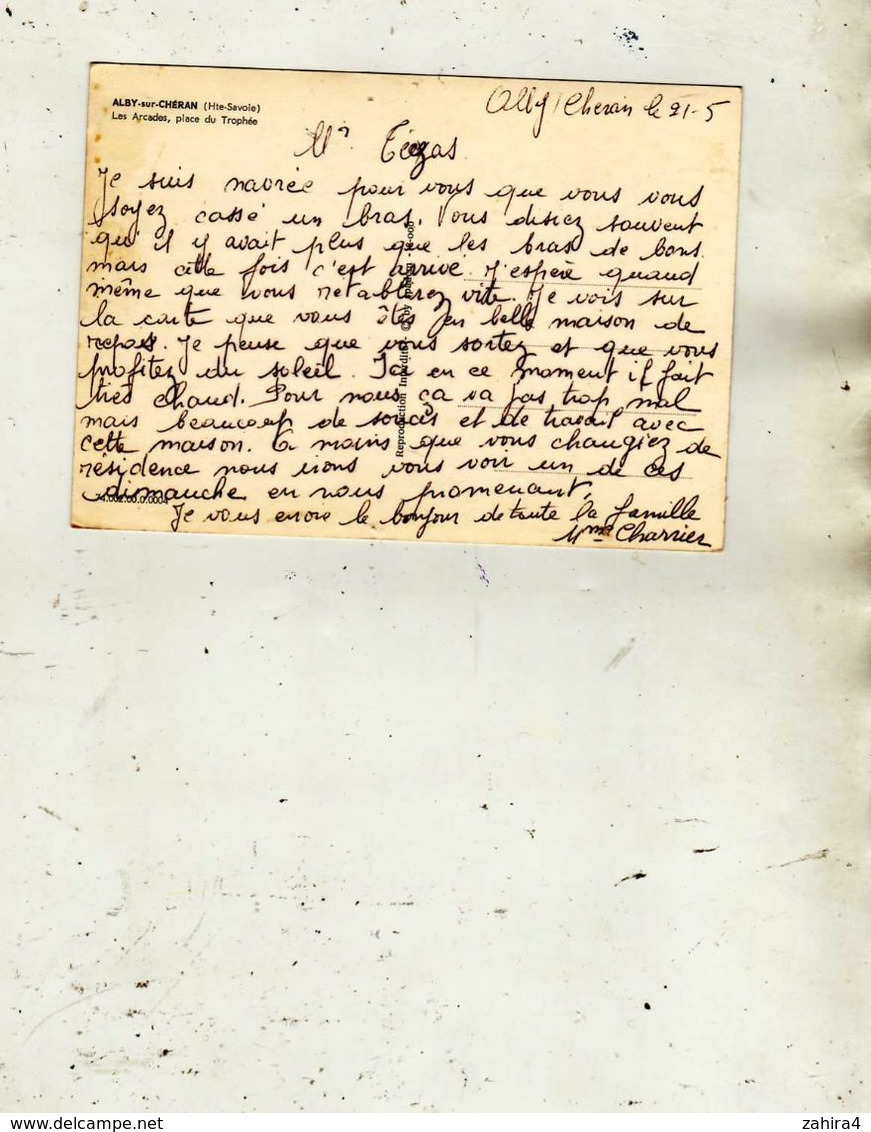 ALBY-sur-CHÉRAN (Hte-Savoie)
Les Arcades, place du Trophée
Alby/Cheran le 21-5
Mr
Je suis navrée pour vous que vous vous
soyez cassé un bras. Vous disiez souvent
qu'il y avait plus que les bras de bons
mais cette fois c'est arrivé. J'espère quand
même que vous retablirez vite. Je vois sur
la carte que vous êtes en belle maison de
repos. Je pense que vous sortez et que vous
profitez du soleil. Ici en ce moment il fait
très chaud. Pour nous ça va pas trop mal
mais beaucoup de soucis et de travail avec
cette maison. A moins que vous changiez de
résidence nous irons vous voir un de ces
dimanche en nous promenant.
Je vous envoie le bonjour de toute la famille
Mme Charrier
Reproduction Interdite
zahira4